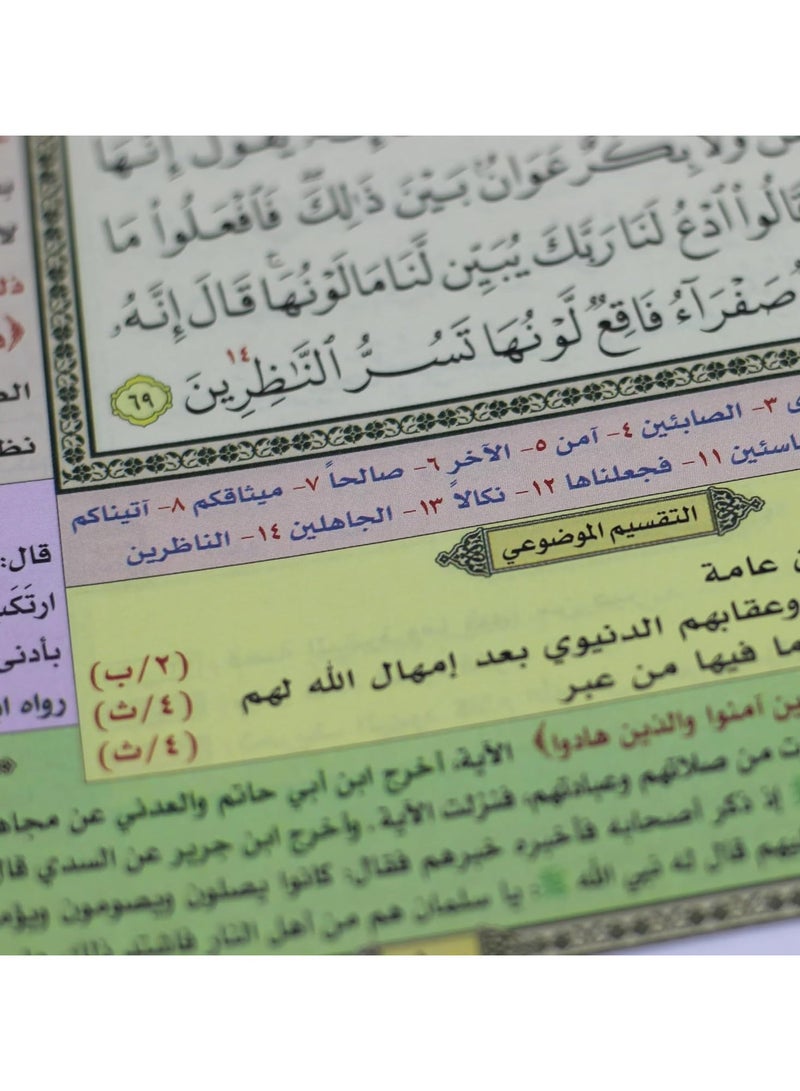 يقول إنها
ولا بكر عوان بين ذلك فافعلوا ما
ٱدۡعُ لَنَا رَبَّكَ يُبَيِّن لَّنَا مَا لَوۡنُهَاۚ قَالَ إِنَّهُۥ
صَفۡرَآءُ فَاقِعٞ لَّوۡنُهَا تَسُرُّ ٱلنَّٰظِرِينَ ١٤ ٦٩
٣- الصابئين ٤- آمن ٥- الآخر ٦- صالحاً ٧- ميثاقكم ٨- آتيناكم
١١- فجعلناها ١٢- نكالاً ١٣- الجاهلين ١٤- الناظرين
التقسيم الموضوعي
عامة (٢/ب)
وعقابهم الدنيوي بعد إمهال الله لهم (٤/ث)
ما فيها من عبر (٤/ث)
آمنوا والذين هادوا﴾ الآية، أخرج ابن أبي حاتم والعدني عن
من صلاتهم وعبادتهم، فنزلت الآية. وأخرج ابن جرير عن السدي
إذ ذكر أصحابه فأخبره خبرهم فقال: كانوا يصلون ويصومون
قال له نبي الله ﷺ: يا سلمان هم من أهل النار فاشتد ذلك
قال:
بأدنى
رواه